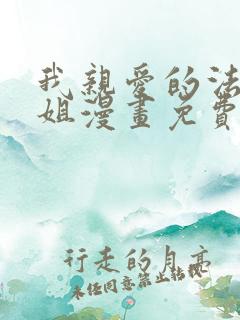 我親愛的法
姐漫畫免費
行走的月亭
未经同意禁止转载